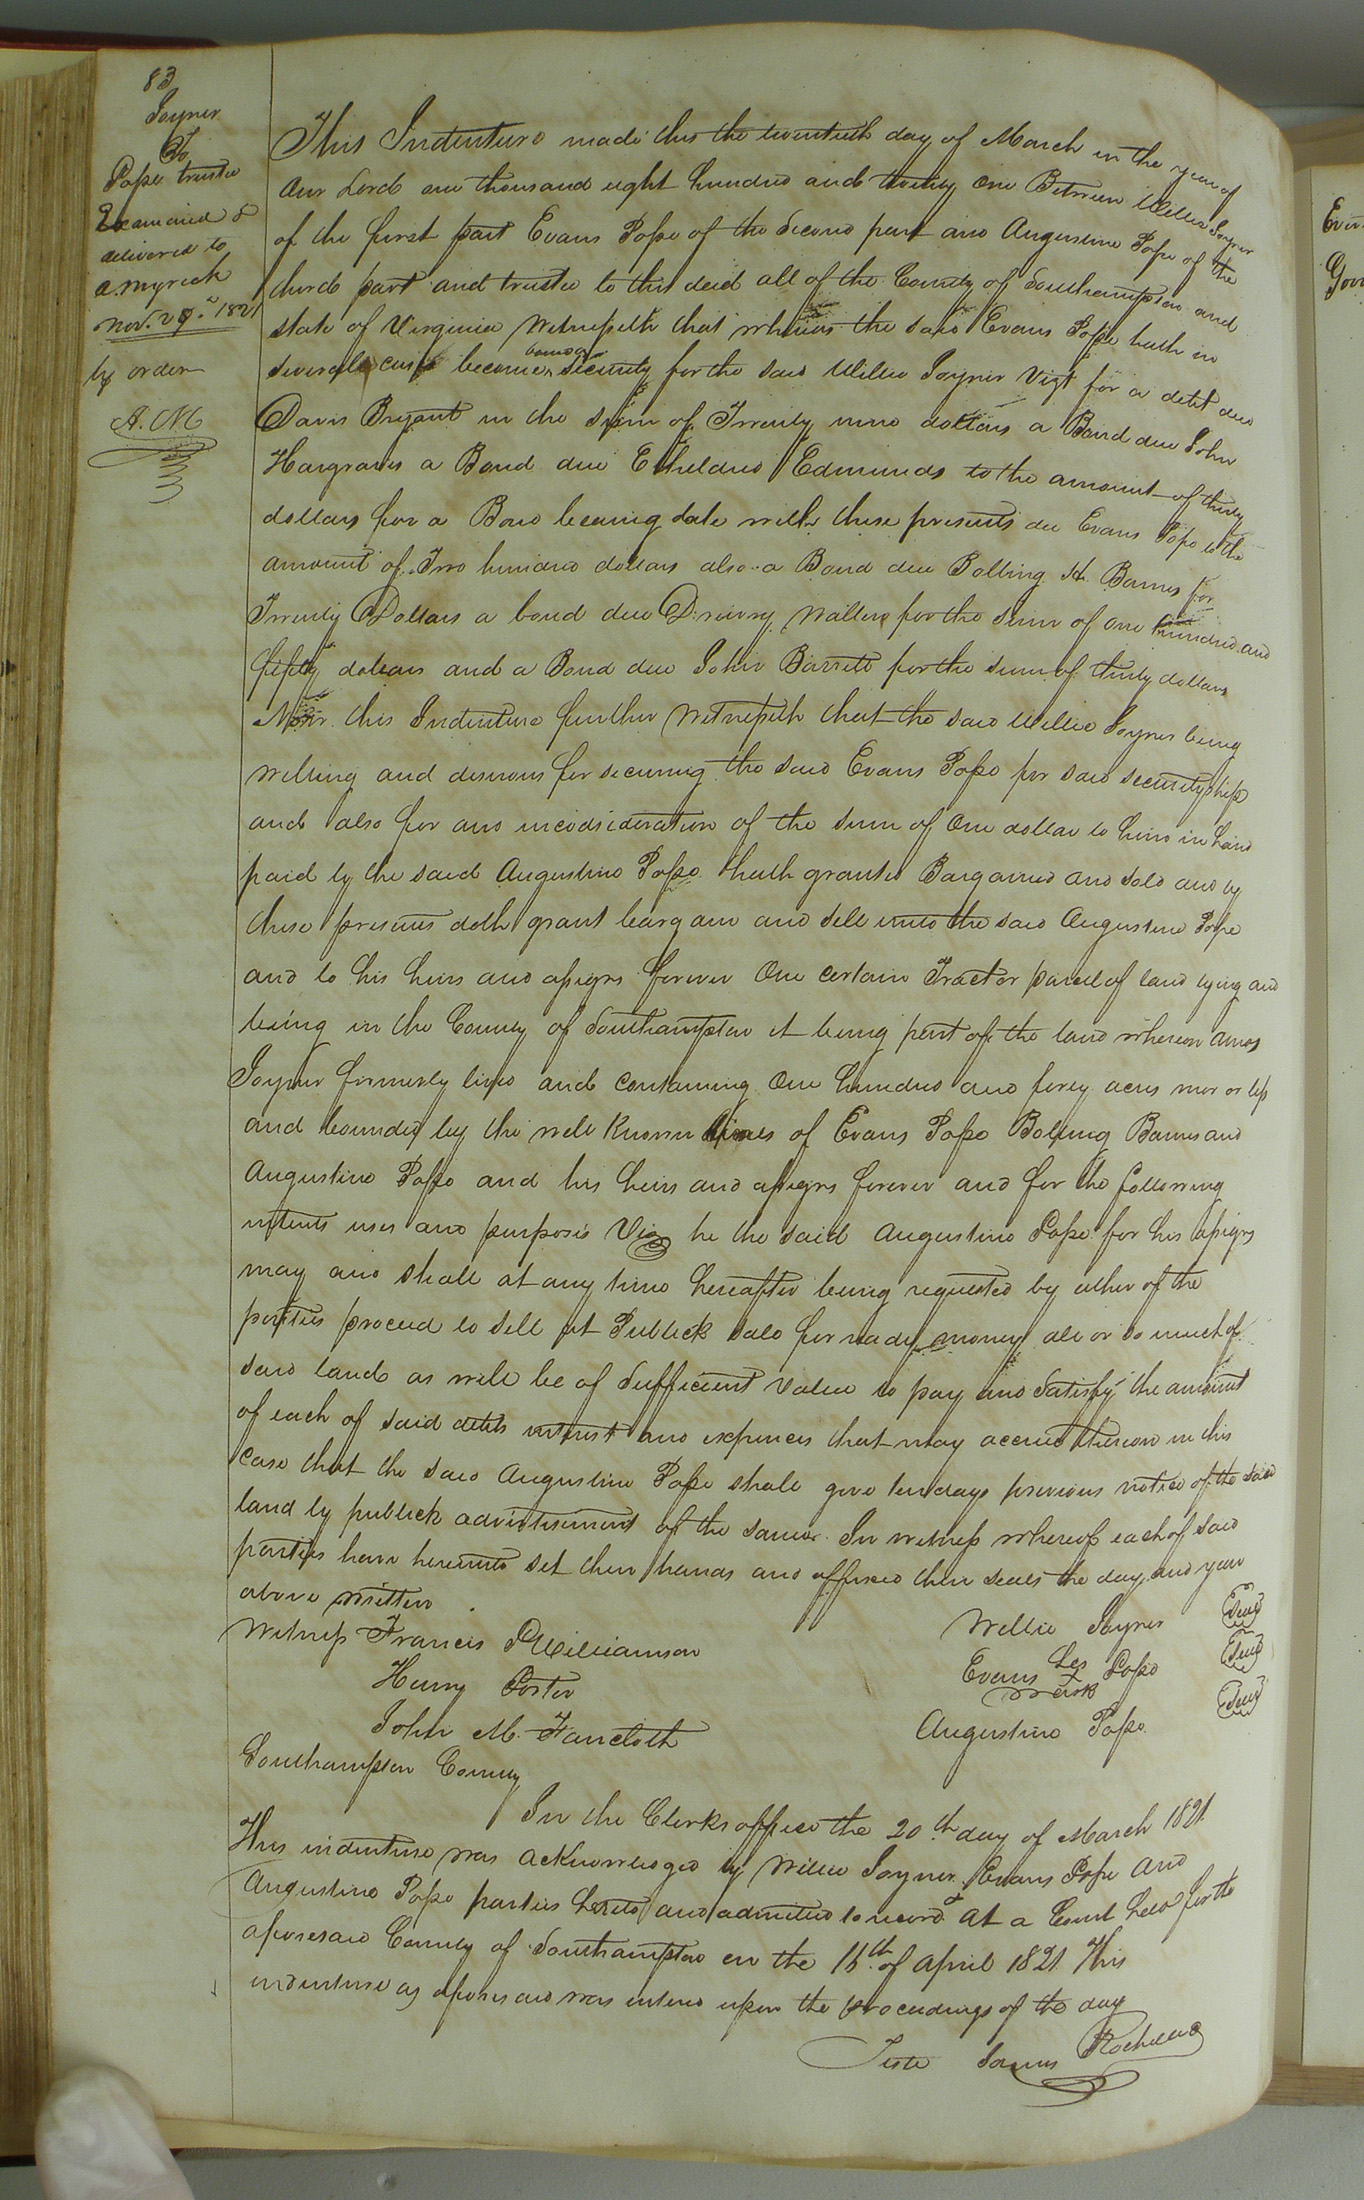 83
Joyner
To
Pope trustee
Examined &
delivered to
A. Myrick
Nov. 29th 1821
by order
A. M
This Indenture made this the twentieth day of March in the year of
Our Lord one thousand eight hundred and twenty one Between Willie Joyner
of the first part Evans Pope of the Second part and Augustine Pope of the
third part and trustee to this deed all of the County of Southampton and
state of Virginia Witnesseth that whereas the said Evans Pope hath in
several cases become security for the said Willie Joyner Vizt for a debt due
Davis Bryant in the sum of Twenty nine dollars a Bond due John
Hargraves a Bond due Etheldred Edmunds to the amount of thirty
dollars for a Bond bearing date with these presents due Evans Pope to the
amount of Two hundred dollars also a Bond due Bolling H. Barnes for
Twenty Dollars a bond due Drewry Waller for the sum of one hundred and
fifty dollars and a Bond due John Barrett for the sum of thirty dollars
Now this Indenture further Witnesseth that the said Willie Joyner being
willing and desirous for securing the said Evans Pope for said securityship
and also for and inconsideration of the sum of One dollar to him in hand
paid by the said Augustine Pope hath granted Bargained and sold and by
these presents doth grant bargain and sell unto the said Augustine Pope
and to his heirs and assigns forever One certain Tract or parcel of land lying and
being in the County of Southampton it being part of the land whereon Amos
Joyner formerly lived and containing One hundred and forty acres mor or less
and bounded by the well Known lines of Evans Pope Bolling Barnes and
Augustine Pope and his heirs and assigns forever and for the following
intents uses and purposes Viz he the said Augustine Pope for his assigns
may and shall at any time hereafter being requested by either of the
parties proceed to sell at Publick sale for ready money all or so much of
said land as will be of Sufficient value to pay and satisfy the amount
of each of said debts interest and expences that may accrue thereon in this
case that the said Augustine Pope shall give ten days previous notice of the said
land by publick advertisement of the same. In witness whereof each of said
parties have hereunto set their hands and affixed their seals the day and year
above written
Witness Francis Williamson Willie Joyner Seal
Henry Porter Evans his mark Pope Seal
John M. Faircloth Augustine Pope Seal
Southampton County
In the Clerks office the 20th day of March 1821
This indenture was acknowledged by Willie Joyner Evans Pope and
Augustine Pope parties hereto and admitted to record At a Court held for the
aforesaid County of Southampton on the 16th of April 1821 This
indenture as aforesaid was entered upon the proceedings of the day
Teste James Rochelle